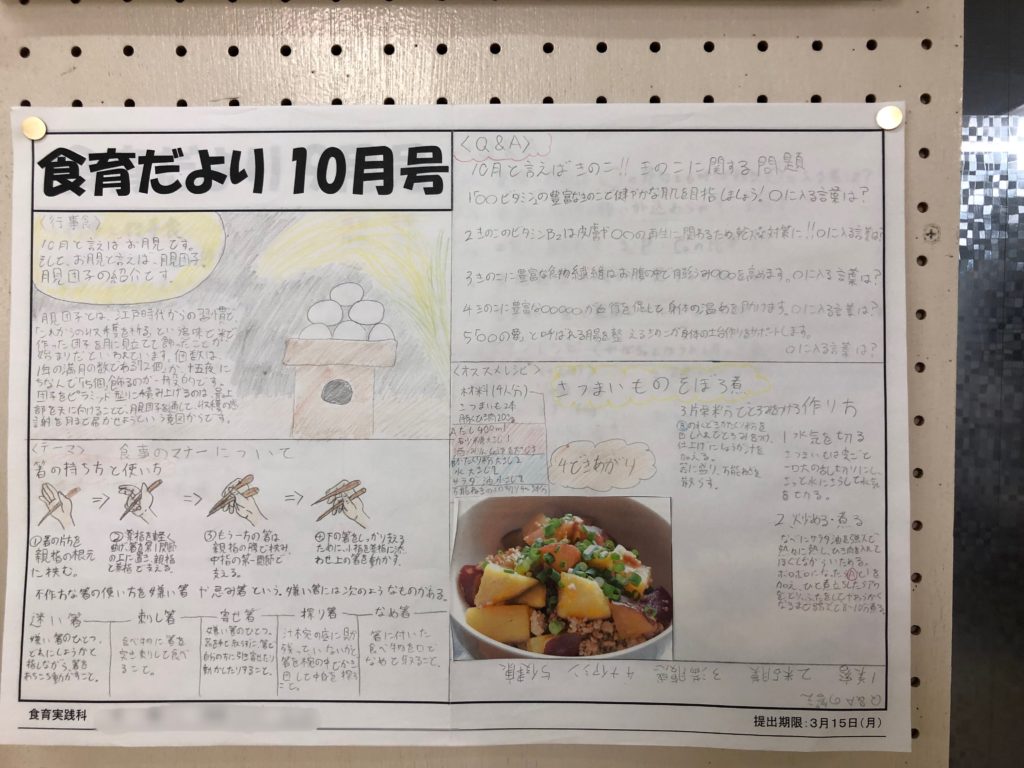 食育だより 10月号
〈行事食〉
10月と言えば お月見です。
そして、お月見と言えば、月見団子。
月見団子の紹介です。
月見団子とは、江戸時代からの習慣で
「これからの収穫を祈る」という意味で米で
作った団子を月に見立てて飾ったことが
始まりだといわれています。個数は、
1年の満月の数である「12個」か、十五夜に
ちなんで「15個」飾るのが一般的です。
団子をピラミッド型に積み上げるのは、最上
部を天に向けることで、月見団子を通して、収穫の感
謝を月まで届かせようという意図からです。
〈テーマ〉 食事のマナーについて
箸の持ち方と使い方
⇒ ⇒ ⇒
①箸の片方を
親指の根元
に挟む。
②薬指を軽く
曲げ、箸を第1関節
の上に置き、親指
と薬指で支える。
③もう一方の箸は
親指の腹で挟み
中指の第一関節で
支える。
④下の箸をしっかり支える
ために、小指を薬指に添
わせ上の箸を動かす。
不作法な箸の使い方を嫌い箸や忌み箸という。嫌い箸には次のようなものがある。
迷い箸
嫌い箸のひとつ。
どれにしようかと
指しながら、箸を
あちこち動かすこと。
刺し箸
食べ物に箸を
突き刺して食べ
ること。
寄せ箸
嫌い箸のひとつ。
自分の方に引き寄せたり
動かしたりすること。
探り箸
汁木宛の底に
残っていないかと
箸を椀の中でかき
回して中身を探る
こと。
なめ箸
箸に付いた
食べ物を口で
なめて取ること。
〈Q&A〉
10月と言えばきのこ!! きのこに関する問題
1 〇〇ビタミンの豊富なきのこと健やかな肌を目指しましょう！〇に入る言葉は？
2 きのこのビタミンB₂は皮膚や〇〇の再生に関わるため、乾燥対策に!! 〇に入る言葉は？
3 きのこに豊富な食物繊維はお腹の中で膨らみ〇〇〇を高めます。〇に入る言葉は？
4 きのこに豊富な〇〇〇〇〇が血行を促して身体の温めを助けます。〇に入る言葉は？
5「〇〇の要」と呼ばれる腸を整えるきのこが身体の土台作りをサポートします。
〇に入る言葉は？
〈オススメレシピ〉
さつまいものそぼろ煮
材料（4人分）
さつまいも2本
豚ひき肉200g
だし 400ml
水 大さじ2
4 できあがり
3 片栗粉でとろみをつける
仕上げにしょうが汁を
加える。
器に盛り、万能ねぎを
散らす。
作り方
1 水気を切る
さつまいもは皮ごと
一口大の乱切りにし、
さっと水にさらして水気
をきる。
2 炒める・煮る
なべにサラダ油を強火で
熱し、ひき肉を入れて
ほぐしながらいためる。
Q&Aの答え
1 美容
2 粘膜
3 満腹感
4 ナイアシン
5 健康
食育実践科
提出期限：3月15日（月）